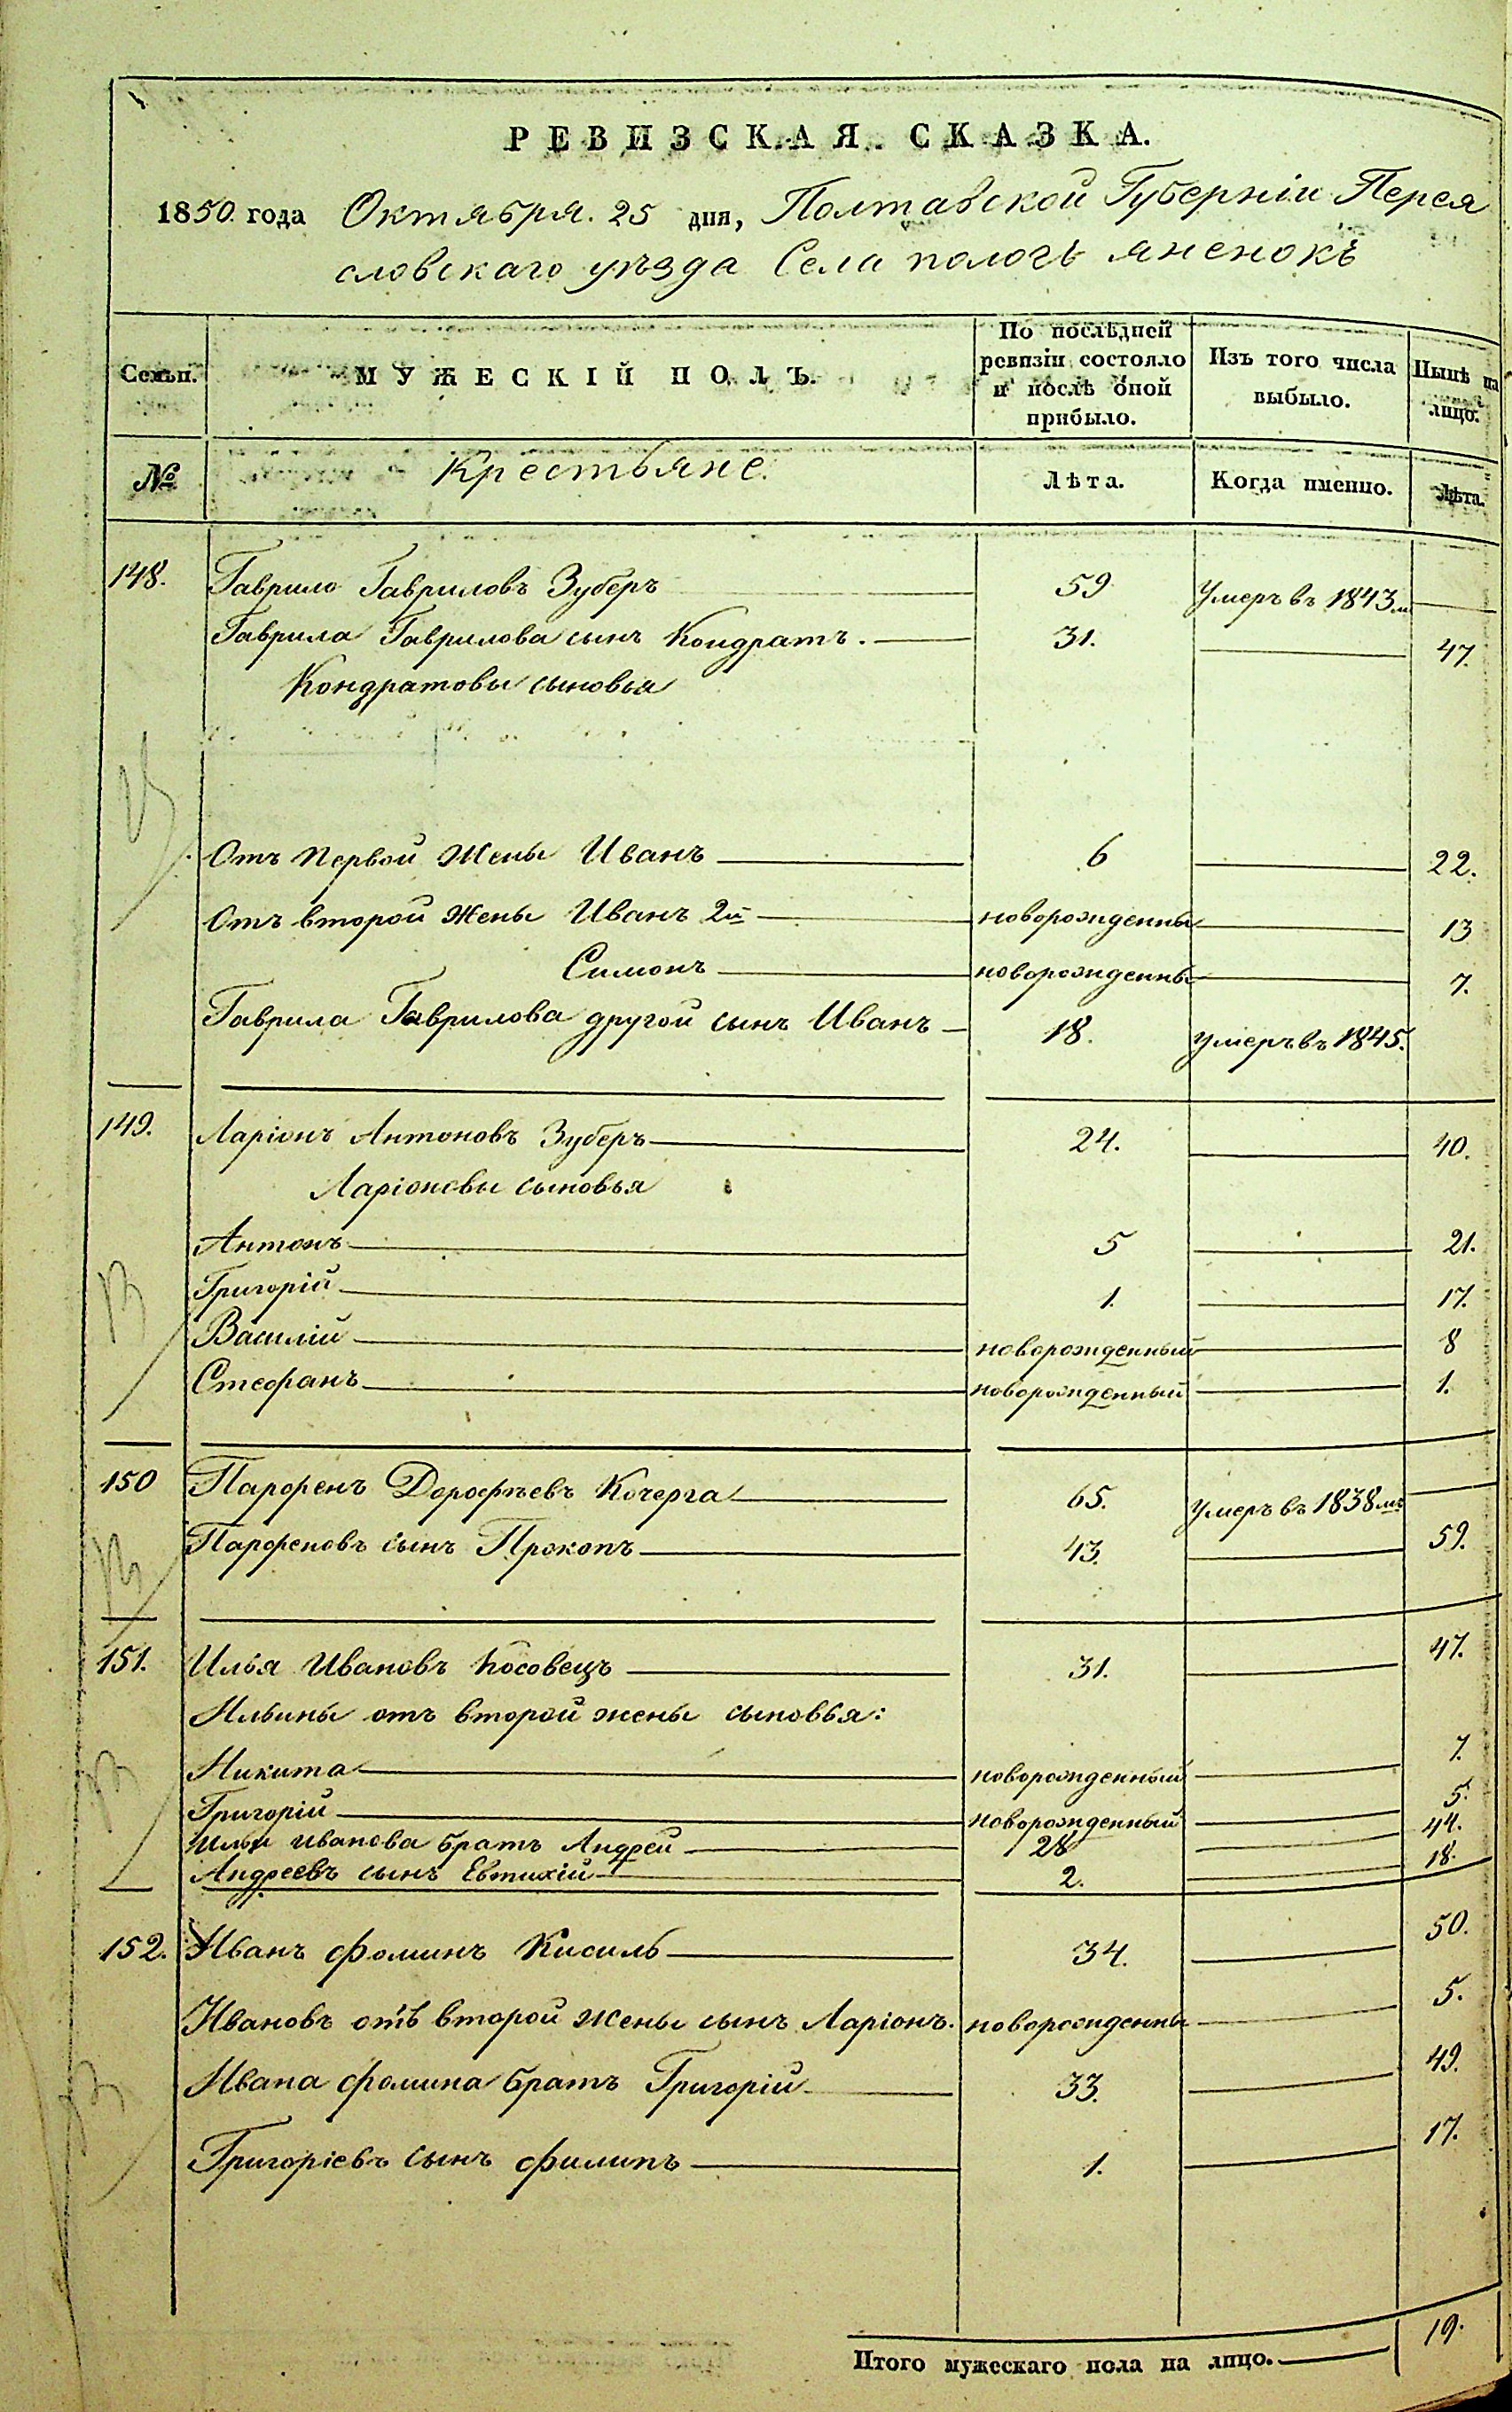 РЕВИЗСКАЯ СКАЗКА.
1850 года Октября. 25 дня, Полтавской Губерніи Перея
словскаго уѣзда Села пологъ яненокъ
Семьи. МУЖЕСКІЙ ПОЛЪ. По послѣдней ревизіи состояло и послѣ оной прибыло. Изъ того числа выбыло. Нынѣ на лицо.
№ Крестьяне. Лѣта. Когда именно. Лѣта.
148. Гаврило Гавриловъ Зуберъ 59 Умеръ въ 1843
Гаврила Гаврилова сынъ Кондратъ. 31. 47.
Кондратовы сыновья
Отъ первой жены Иванъ 6 22.
Отъ второй жены Иванъ 2й новорожденны 13
Симонъ новорожденны 7.
Гаврила Гаврилова другой сынъ Иванъ 18. умеръ въ 1845.
149. Ларіонъ Антоновъ Зуберъ 24. 40.
Ларіоновы сыновья
Антонъ 5 21.
Григорій 1. 17.
Василій новорожденный 8
Стефанъ новорожденный 1.
150 Парфенъ Дорофѣевъ Кочерга 65. Умеръ въ 1838мъ
Парфеновъ сынъ Прокопъ 43. 59.
151. Илья Ивановъ Косовецъ 31. 47.
Ильины отъ второй жены сыновья:
Никита новорожденный 7.
Григорій новорожденный 5.
Ильи Иванова братъ Андрей 28 44.
Андреевъ сынъ Евтихій 2. 18.
152. Иванъ Фоминъ Кисиль 34. 50.
Ивановъ отъ второй жены сынъ Ларіонъ. новорожденны 5.
Ивана Фомина братъ Григорій 33. 49.
Григоріевъ сынъ Филипъ 1. 17.
Итого мужескаго пола на лицо. 19.